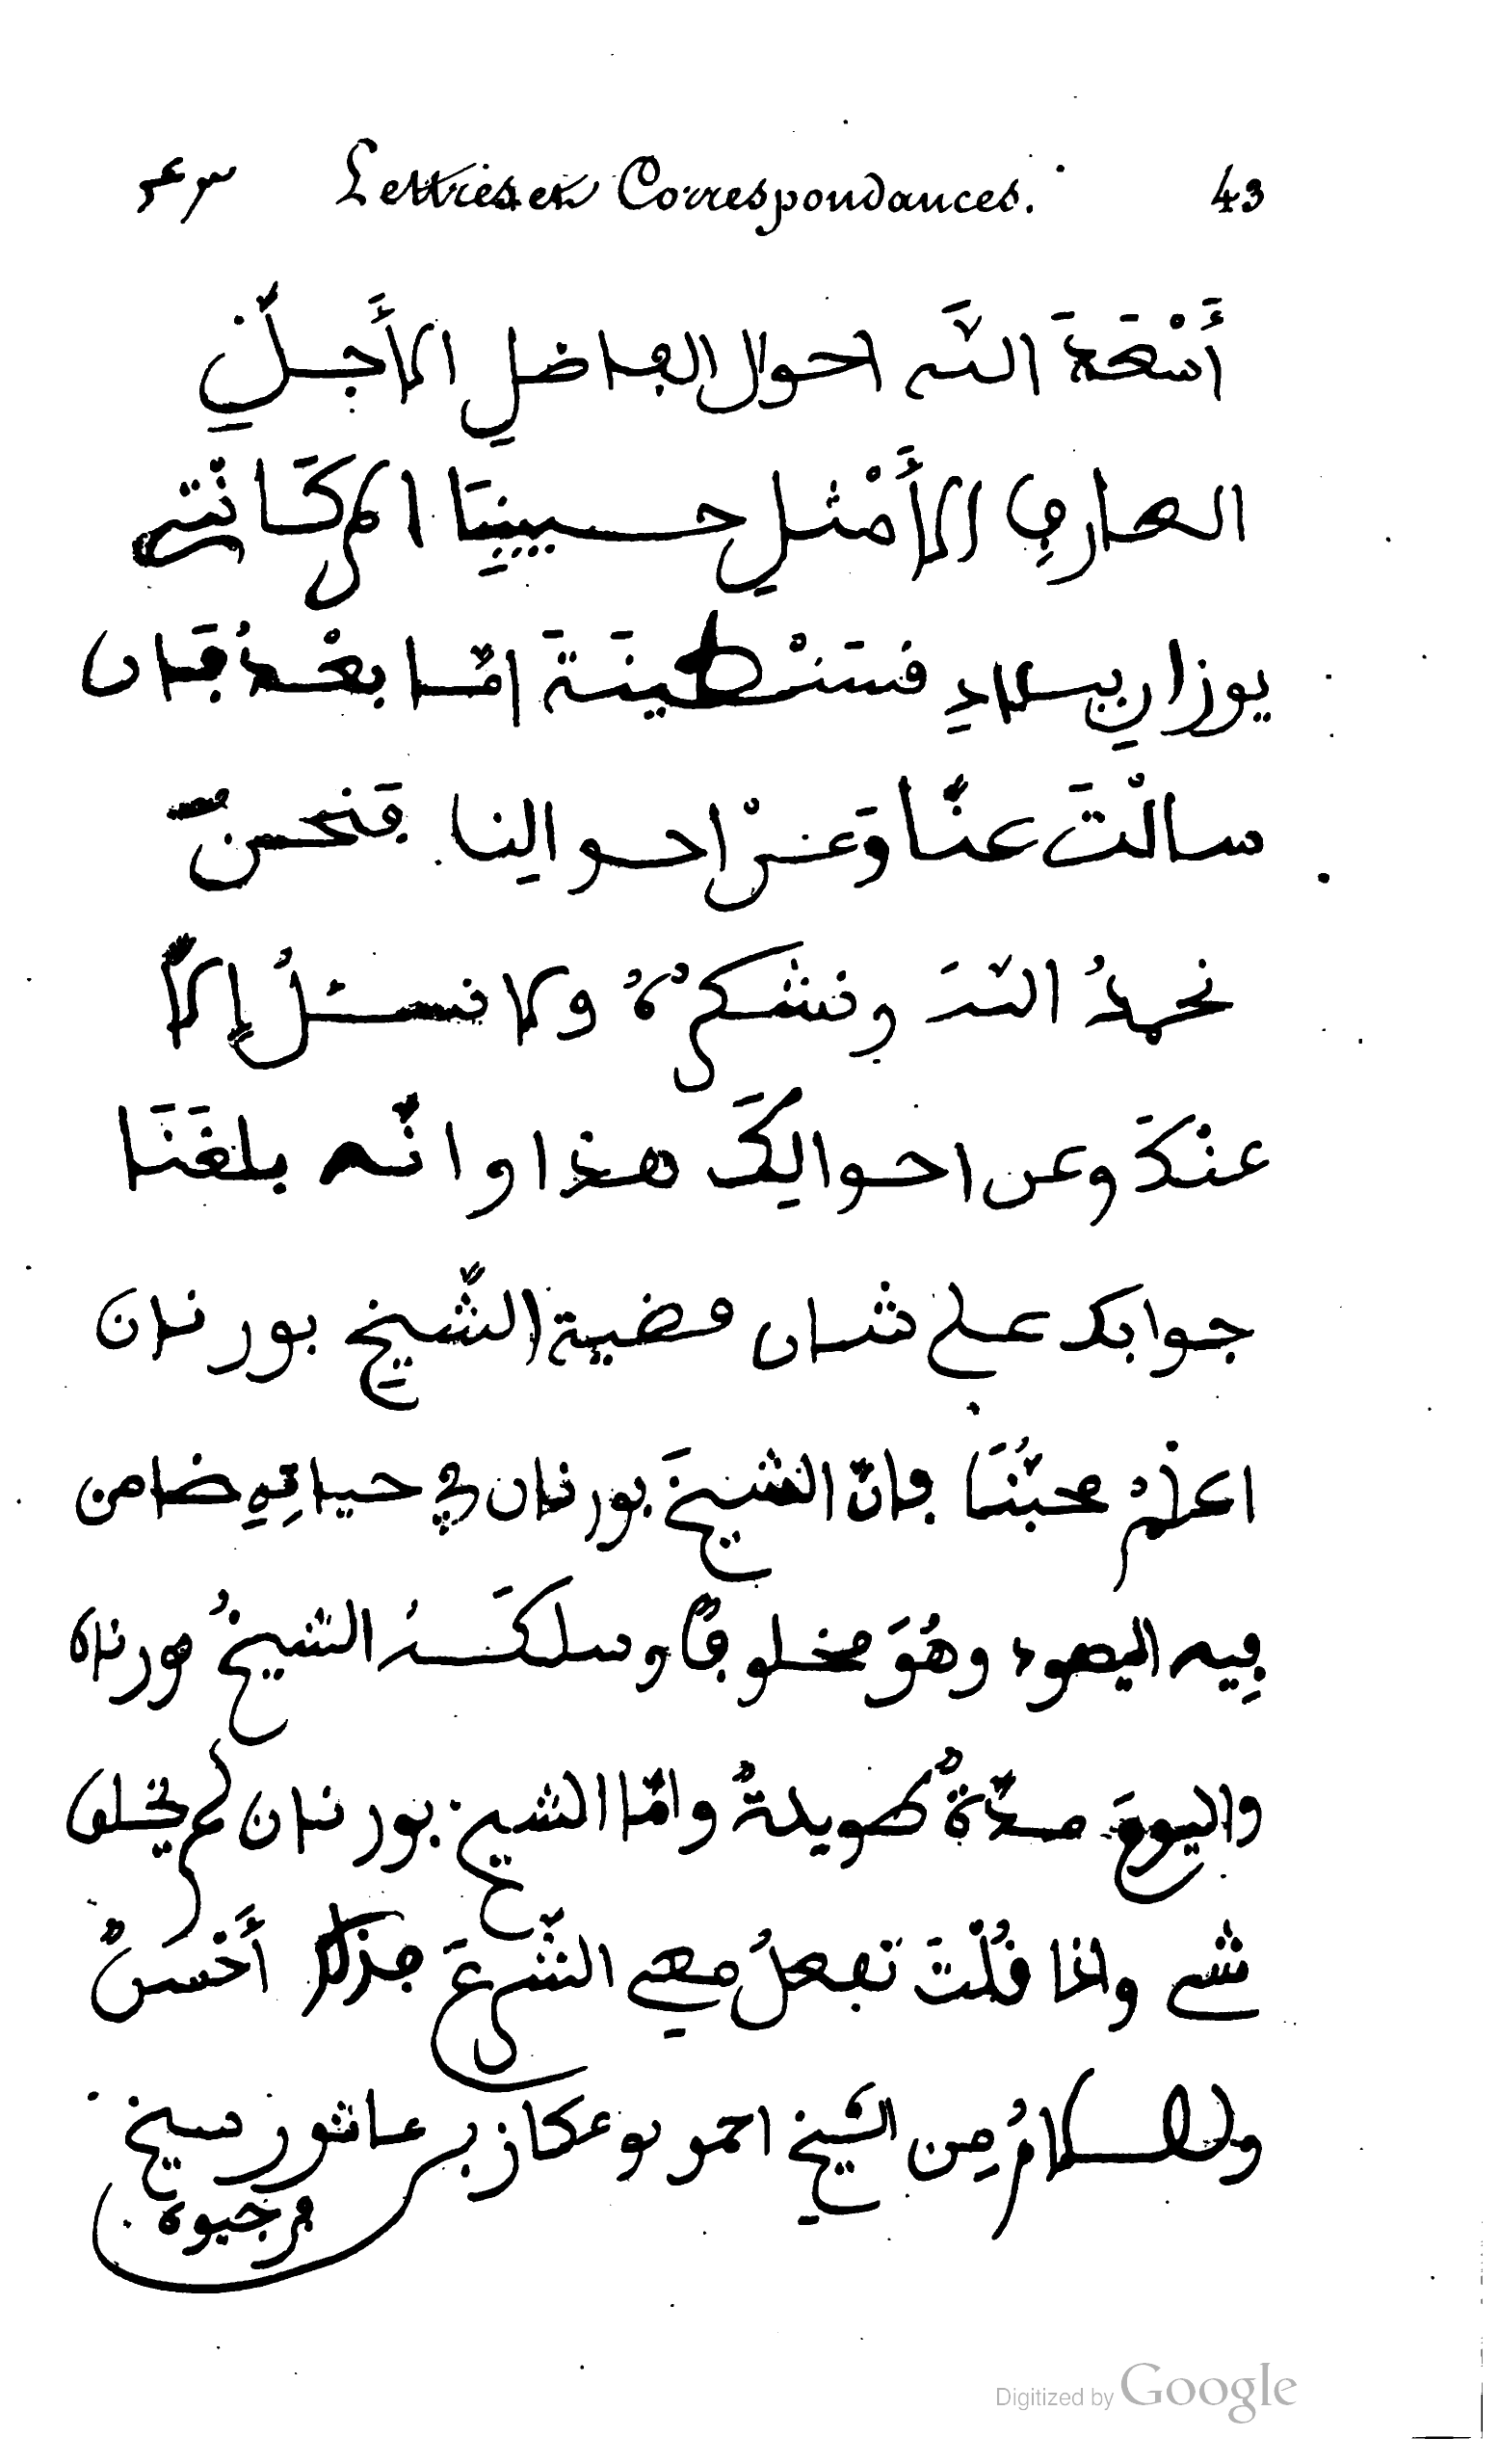 ۴۳ Lettres et Correspondances. 43
أَسْعَدَ اللّٰه احوال الڢاضلِ الأَجلِّ
العارڢِ الأَمْثلِ حسيبِنَا المركَانْتي
يوزارِ ببلادِ فسَنْطينَةَ امّا بعْدُ ڢَان
سالْتَ عنَّا وَعَنْ احوالِنا ڢَنحنُ
نحمدُ اللّٰهَ ونشكرُهُ ولا نسئلُ إلاَّ
عنْكَ وعن احوالِكَ هذا وانّه بلغَنَا
جوابك على شان فضية الشّيخِ بورنان
اعلمْ محبُّنَا ڢانّ الشيخَ بورنان ڢي حياتِهِ ضامن
ڢِيه اليهود وهُوَ مخلوفًا وسلكَهُ الشيخُ بورنان
واليومَ مدّةٌ طويلةٌ وامّا الشيخ بورنان لم يخلف
شے واذا فُلْتَ تڢعلُ معِي الشّرعَ ڢذلك أَحْسَنُ
والسلامُ مِن الشيخ احمد بوعكاز بن عاشور شيخ
ڢرجيوة
Digitized by Google